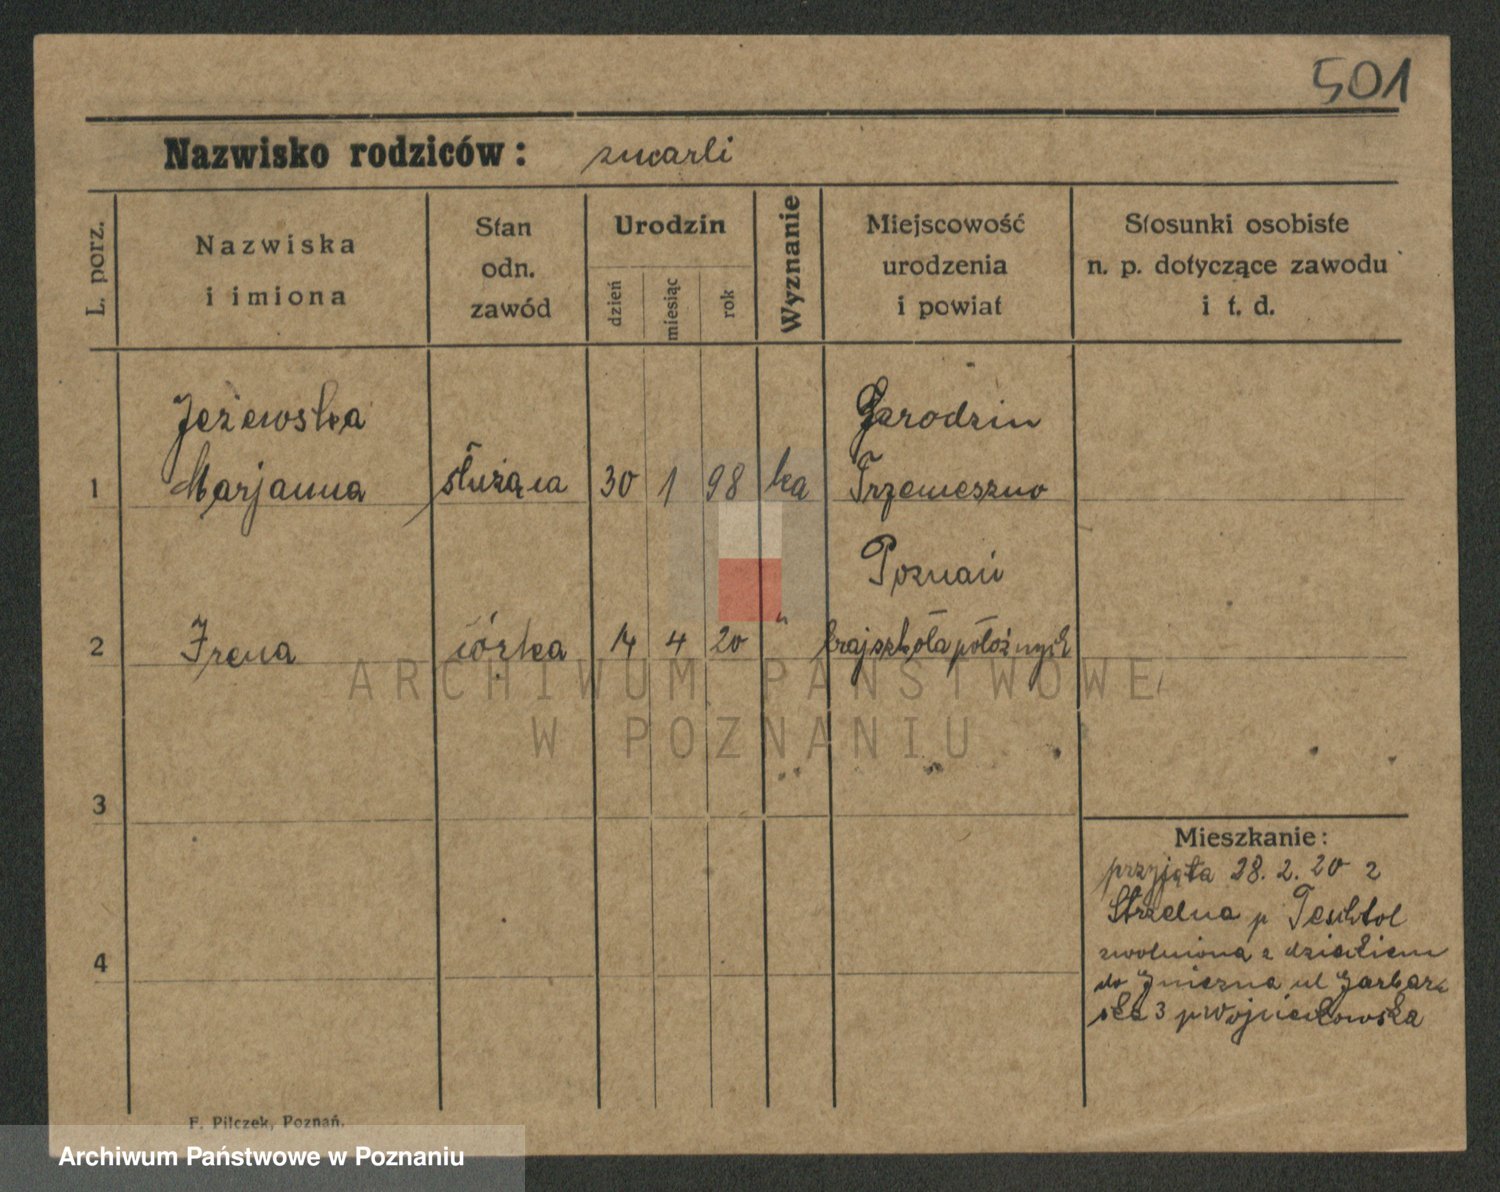 501
Nazwisko rodziców: zmarli
L. porz.
Nazwiska
i imiona
Stan
odn.
zawód
Urodzin
dzień
miesiąc
rok
Wyznanie
Miejscowość
urodzenia
i powiat
Stosunki osobiste
n. p. dotyczące zawodu
i t. d.
Jeżewska
1 Marjanna służąca 30 1 98 ka
Trzemeszno
Poznań
2 Irena córka 14 4 20 "
kraj szkoła położnych
3
4
Mieszkanie:
przyjęta 28. 2. 20 z
Strzelna p
zwolniona z dzieckiem
do Gniezna ul Garbar
ska 3 p Wojciechowska
F. Pilczek, Poznań.
ARCHIWUM PAŃSTWOWE
W POZNANIU
Archiwum Państwowe w Poznaniu